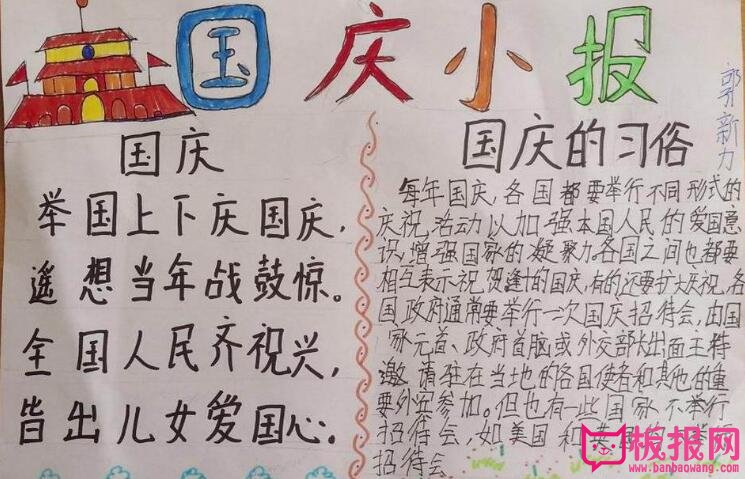 国庆小报
郭新力
国庆
举国上下庆国庆，
遥想当年战鼓惊。
全国人民齐祝兴，
皆出儿女爱国心。
国庆的习俗
每年国庆，各国都要举行不同形式的
庆祝活动以加强本国人民的爱国意
识，增强国家的凝聚力。各国之间也都要
相互表示祝贺逢十的国庆，有的还要扩大庆祝，各
国政府通常要举行一次国庆招待会，由国
家元首、政府首脑或外交部长出面主持
邀请驻在当地的各国使者和其他的重
要外宾参加。但也有一些国家不举行
招待会，如美国和英国
招待会
板报网
www.banbaowang.com